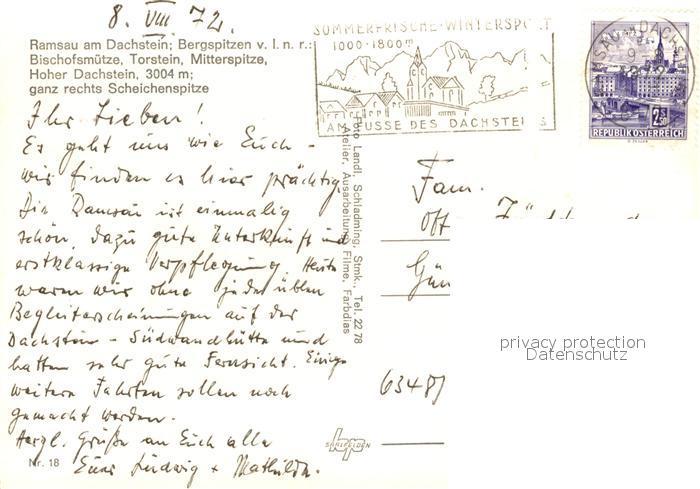 8. VIII. 72.
Ramsau am Dachstein; Bergspitzen v. l. n. r.:
Bischofsmütze, Torstein, Mitterspitze,
Hoher Dachstein, 3004 m;
ganz rechts Scheichenspitze
SOMMERFRISCHE - WINTERSPORT
1000-1800m
AM FUSSE DES DACHSTEINS
RAMSAU DACHST
REPUBLIK ÖSTERREICH
2.50
Ihr Lieben!
Es geht uns wie Euch -
wir finden es hier prächtig.
Die Ramsau ist einmalig
schön, dazu gute Unterkunft und
erstklassige Verpflegung. Heute
waren wir ohne jede üblen
Begleiterscheinungen auf der
Dachstein-Südwandhütte und
hatten sehr gute Fernsicht. Einige
weitere Fahrten sollen noch
gemacht werden.
Herzl. Grüße an Euch alle
Eure Ludwig + Mathilde.
Nr. 18
Foto Landl, Schladming, Stmk., Tel. 22 78
Atelier, Ausarbeitung, Filme, Farbdias
Fam.
Ott
Gün
63487
privacy protection
Datenschutz
SAALFELDEN